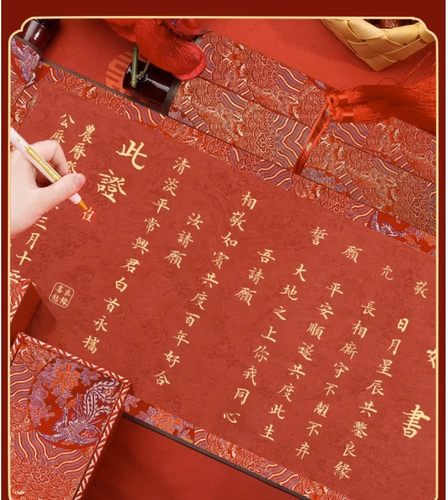 書
敬
日月星辰共鑒良緣
允
長相廝守不離不弃
願
平安順遂共度此生
誓
大地之上你我同心
吾請願
相敬如賓共度百年好合
汝請願
清淡平常與君白首永攜
此證
農曆
公曆
三月十